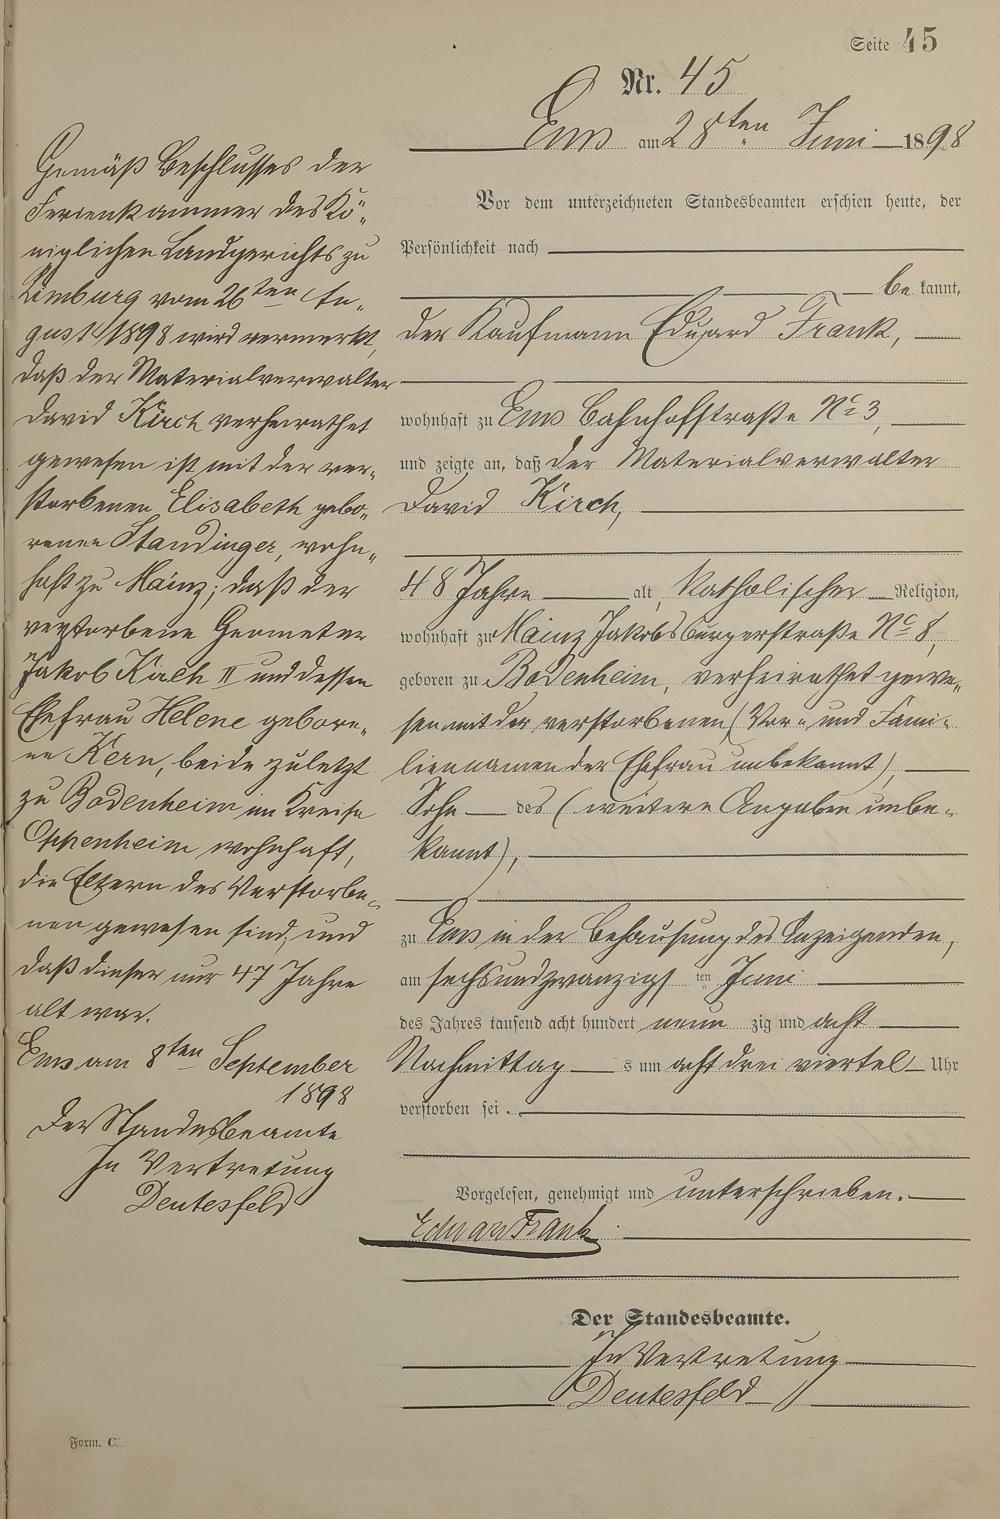 Seite 45
Nr. 45
Ems am 28ten Juni 1898
Vor dem unterzeichneten Standesbeamten erschien heute, der
Persönlichkeit nach
be kannt,
der Kaufmann Eduard Frank,
wohnhaft zu Ems Bahnhofstraße No 3,
und zeigte an, daß der Materialverwalter
David Kirch,
48 Jahre alt, katholischer Religion,
wohnhaft zu Mainz Jakobsburgerstraße No 8,
geboren zu Bodenheim, verheirathet gewe-
sen mit der verstorbenen (Vor- und Fami-
liennamen der Ehefrau unbekannt),
Sohn des (weitere Angaben unbe-
kannt),
zu Ems in der Behausung des Anzeigenden,
am sechsundzwanzigs ten Juni
des Jahres tausend acht hundert neun zig und acht
Nachmittag s um acht drei viertel Uhr
verstorben sei.
Vorgelesen, genehmigt und unterschrieben.
Eduard Frank
Der Standesbeamte.
In Vertretung
Deutesfeld
Gemäß Beschlusses der
Ferienkammer des Kö-
niglichen Landgerichts zu
Limburg vom 26ten Au-
gust 1898 wird vermerkt,
daß der Materialverwalter
David Kirch verheirathet
gewesen ist mit der ver-
storbenen Elisabeth gebo-
renen Staudinger, wohn-
haft zu Mainz; daß der
verstorbene Geometer
Jakob Kirch II und dessen
Ehefrau Helene gebore-
ne Kern, beide zuletzt
zu Bodenheim im Kreise
Oppenheim wohnhaft,
die Eltern des Verstorbe-
nen gewesen sind, und
daß dieser nur 47 Jahre
alt war.
Ems am 8ten September
1898
Der Standesbeamte
In Vertretung
Deutesfeld
Form. C.